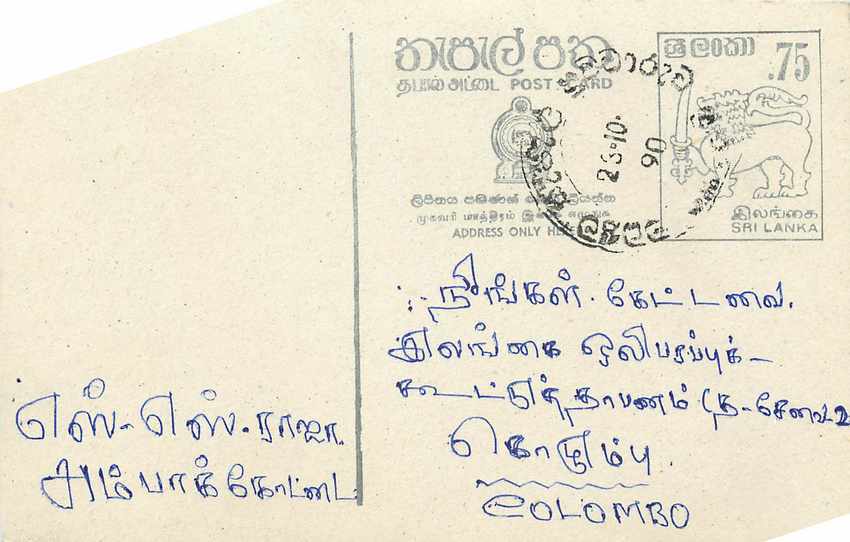 තැපැල් පත
தபால் அட்டை POST CARD
ලිපිනය පමණක්
முகவரி மாத்திரம் இங்கு எழுதுக
ADDRESS ONLY HERE
ශ්‍රී ලංකා
.75
இலங்கை
SRI LANKA
26·10·
90
நீங்கள். கேட்டவை.
இலங்கை ஒலிபரப்புக்-
கூட்டுத்தாபனம் (த-சேவை-2
கொழும்பு.
COLOMBO
எஸ்-எஸ்.ராஜா.
அம்பாக்கோட்டை